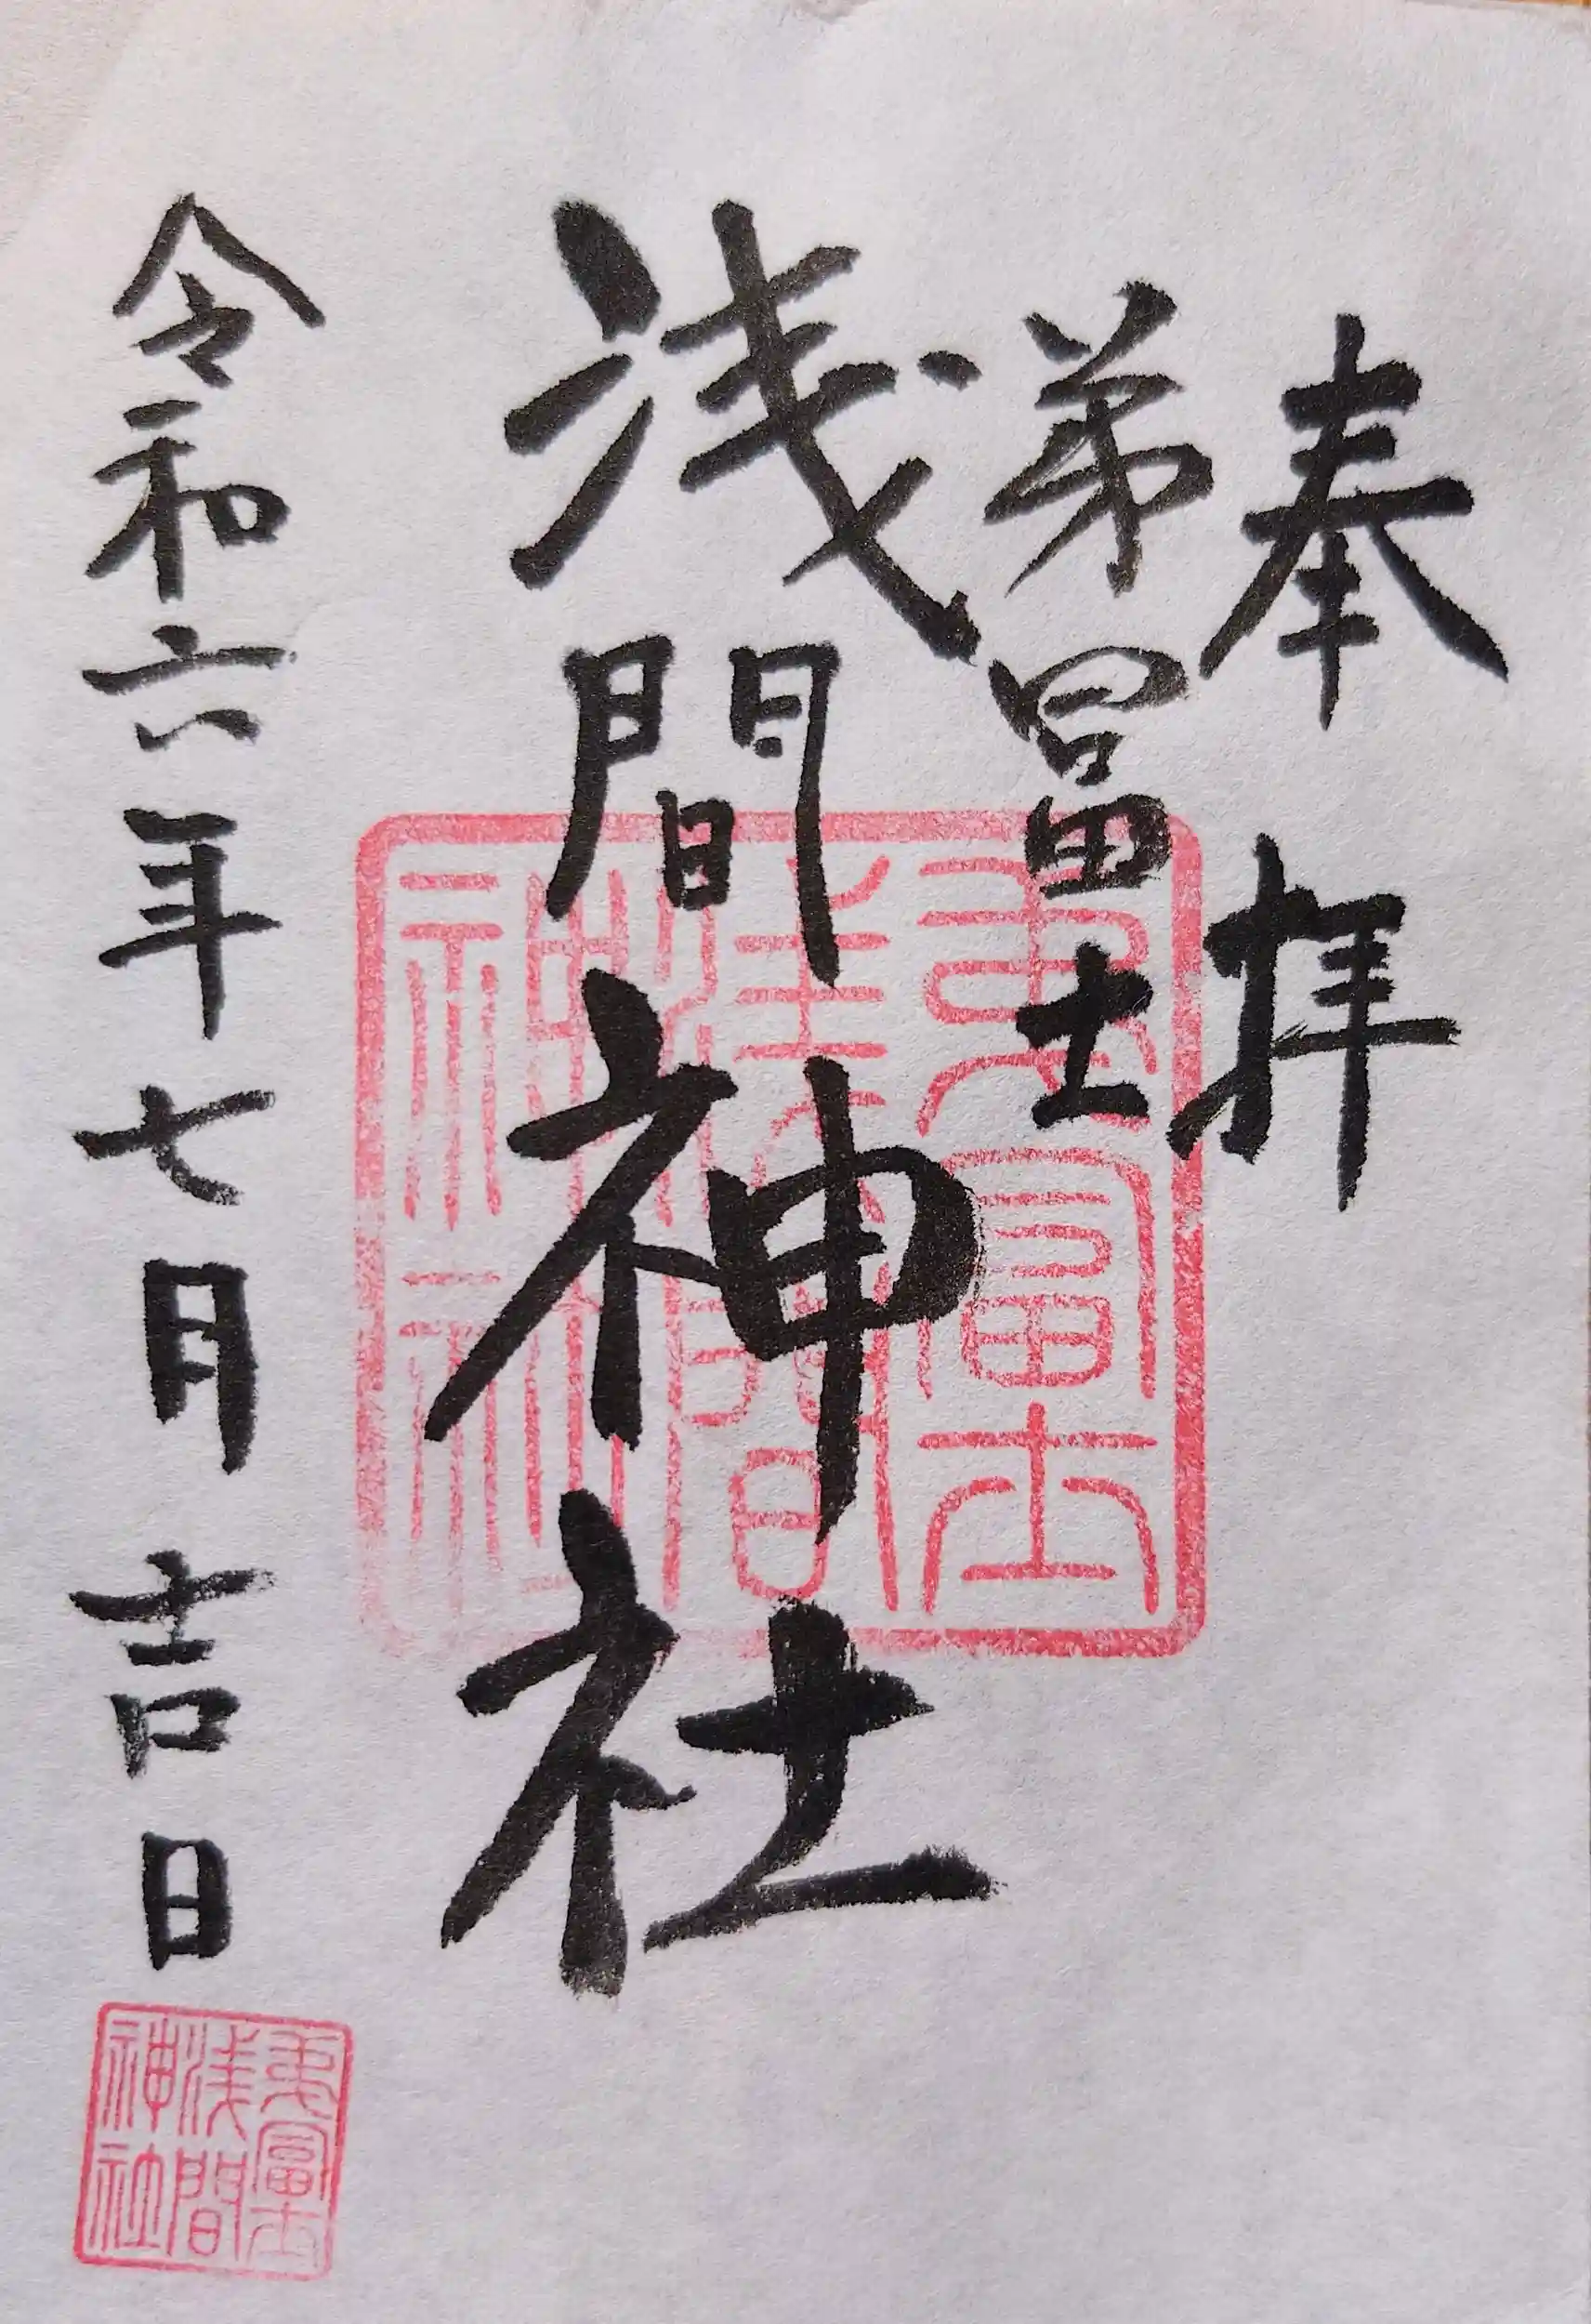 奉拝
弟富士
浅間神社
令和六年七月吉日
弟富士
浅間
神社
弟富士
浅間
神社